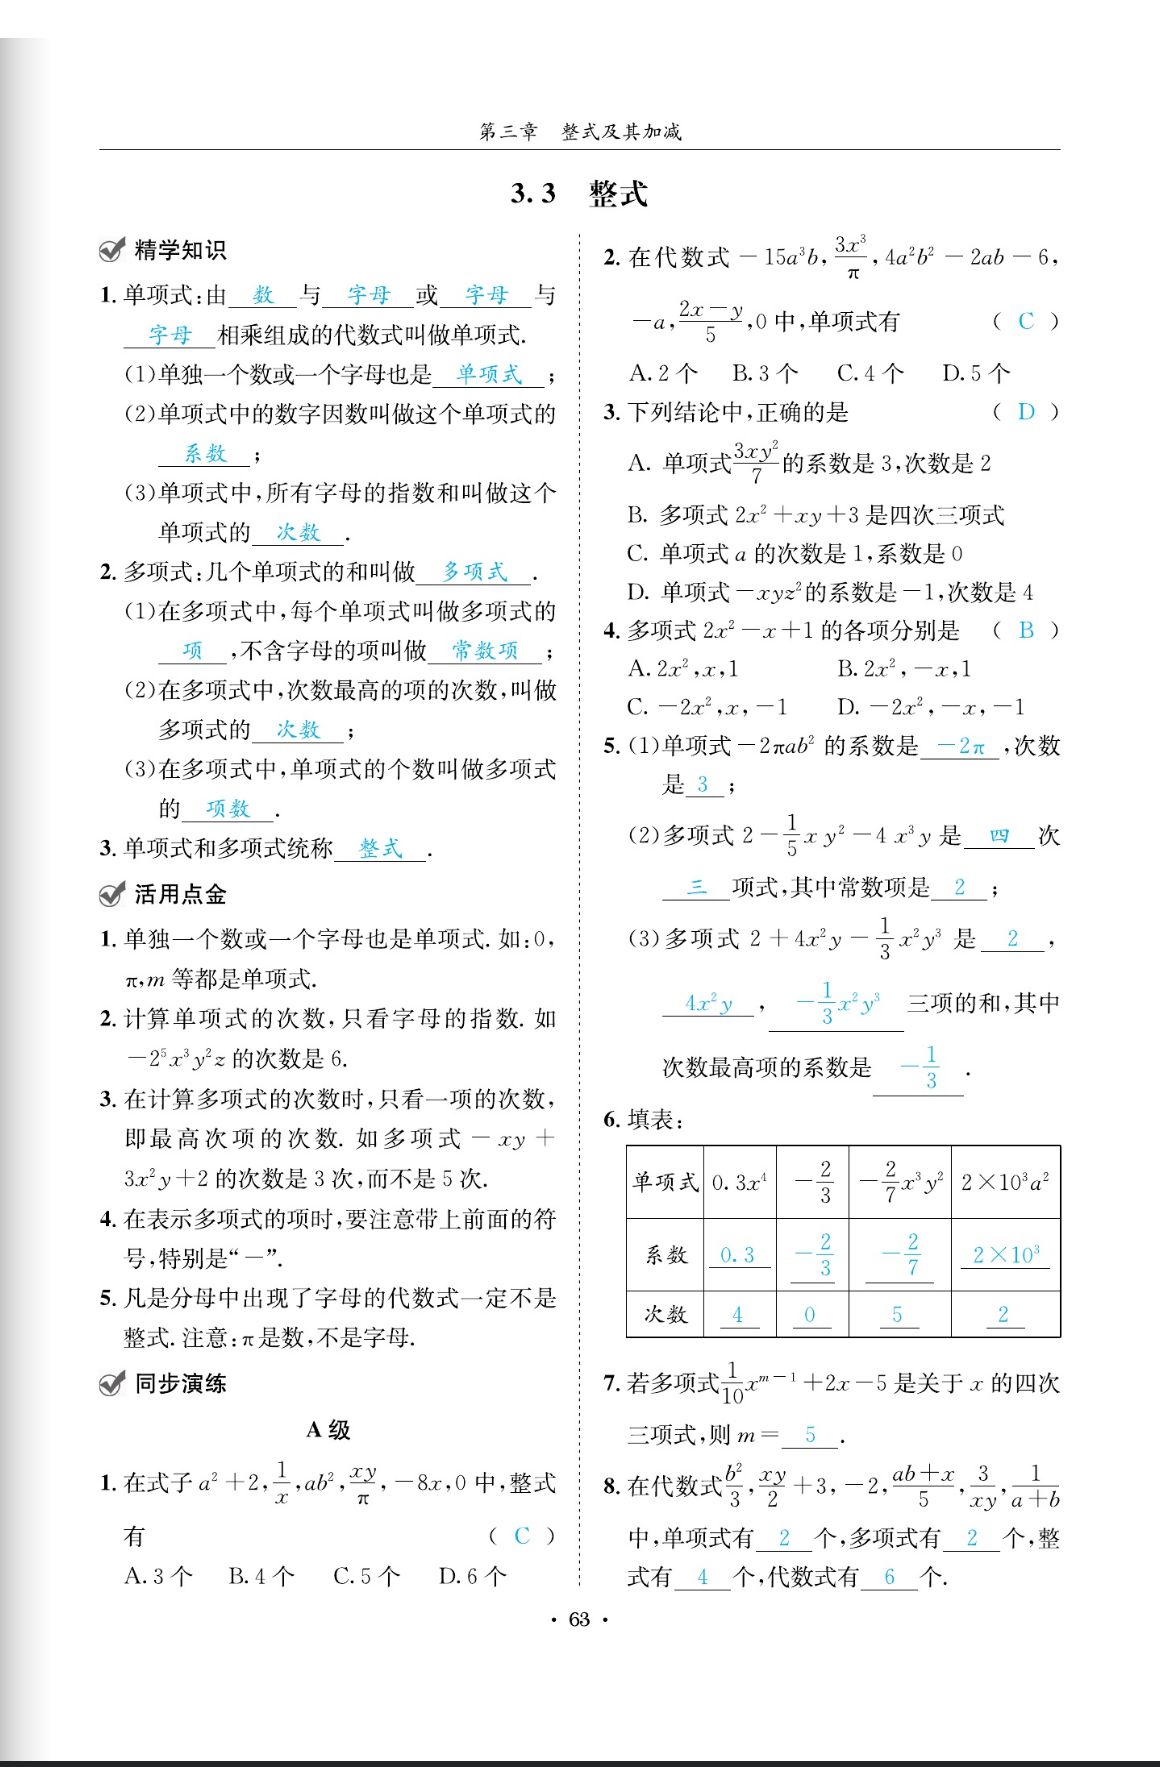 第三章 整式及其加减
3.3 整式
精学知识
1. 单项式:由 数 与 字母 或 字母 与
字母 相乘组成的代数式叫做单项式.
(1)单独一个数或一个字母也是 单项式 ;
(2)单项式中的数字因数叫做这个单项式的
系数 ;
(3)单项式中,所有字母的指数和叫做这个
单项式的 次数 .
2. 多项式:几个单项式的和叫做 多项式 .
(1)在多项式中,每个单项式叫做多项式的
项 ,不含字母的项叫做 常数项 ;
(2)在多项式中,次数最高的项的次数,叫做
多项式的 次数 ;
(3)在多项式中,单项式的个数叫做多项式
的 项数 .
3. 单项式和多项式统称 整式 .
活用点金
1. 单独一个数或一个字母也是单项式. 如:0,
π,m 等都是单项式.
2. 计算单项式的次数,只看字母的指数. 如
-2⁵x³y²z 的次数是 6.
3. 在计算多项式的次数时,只看一项的次数,
即最高次项的次数. 如多项式 -xy+
3x²y+2 的次数是 3 次,而不是 5 次.
4. 在表示多项式的项时,要注意带上前面的符
号,特别是“-”.
5. 凡是分母中出现了字母的代数式一定不是
整式. 注意:π是数,不是字母.
同步演练
A 级
1. 在式子 a²+2, 1/x, ab², xy/π, -8x, 0 中,整式
有 ( C )
A. 3 个 B. 4 个 C. 5 个 D. 6 个
2. 在代数式 -15a³b, 3x³/π, 4a²b²-2ab-6,
-a, (2x-y)/5, 0 中,单项式有 ( C )
A. 2 个 B. 3 个 C. 4 个 D. 5 个
3. 下列结论中,正确的是 ( D )
A. 单项式 3xy²/7 的系数是 3,次数是 2
B. 多项式 2x²+xy+3 是四次三项式
C. 单项式 a 的次数是 1,系数是 0
D. 单项式 -xyz² 的系数是 -1,次数是 4
4. 多项式 2x²-x+1 的各项分别是 ( B )
A. 2x²,x,1 B. 2x²,-x,1
C. -2x²,x,-1 D. -2x²,-x,-1
5. (1)单项式 -2πab² 的系数是 -2π ,次数
是 3 ;
(2)多项式 2-1/5xy²-4x³y 是 四 次
三 项式,其中常数项是 2 ;
(3)多项式 2+4x²y-1/3x²y³ 是 2 ,
4x²y , -1/3x²y³ 三项的和,其中
次数最高项的系数是 -1/3 .
6. 填表:
单项式 0.3x⁴ -2/3 -2/7x³y² 2×10³a²
系数 0.3 -2/3 -2/7 2×10³
次数 4 0 5 2
7. 若多项式 1/10x^(m-1)+2x-5 是关于 x 的四次
三项式,则 m= 5 .
8. 在代数式 b²/3, xy/2+3, -2, (ab+x)/5, 3/xy, 1/(a+b)
中,单项式有 2 个,多项式有 2 个,整
式有 4 个,代数式有 6 个.
• 63 •